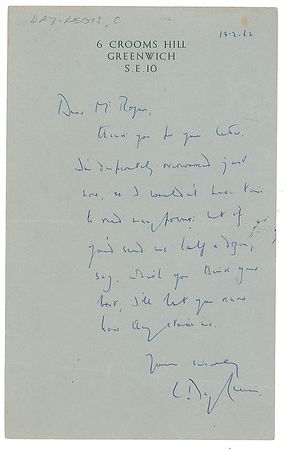 DAY-LEWIS, C
6 CROOMS HILL
GREENWICH
S.E.10
19.2.62
Dear Mr Roper,
Thank you for your letter.
I'm desperately overworked just
now, so I wouldn't have time
to read many poems: but if
you'd send me half a dozen,
say, which you think your
best, I'll let you know
how they strike me.
Yours sincerely
C. Day Lewis.